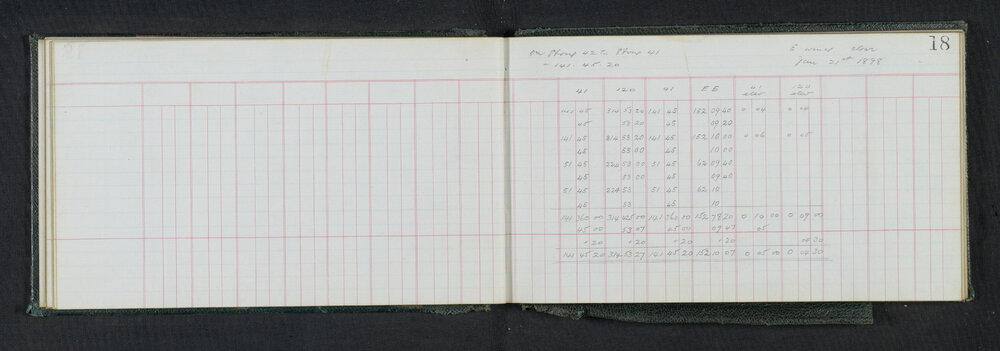 18
on Phong 42 to Phong 41
- 141. 45 20
E wind slow
Jan 21st 1898
41 120 41 EE 41 elev 120 elev
141 45 314 53 20 141 45 152 09 40 0 04 0 04
45 53 20 45 09 20
141 45 314 53 20 141 45 152 10 00 0 06 0 05
45 53 00 45 10 00
51 45 224 53 00 51 45 62 09 40
45 53 00 45 09 40
51 45 224 53 51 45 62 10
45 53 45 10
141 360 00 314 425 00 141 360 00 152 78 20 0 10 00 0 09 00
45 00 53 07 45 00 09 47 05
+20 +20 +20 +20 04 30
141 45 20 314 53 27 141 45 20 152 10 07 0 05 00 0 04 30